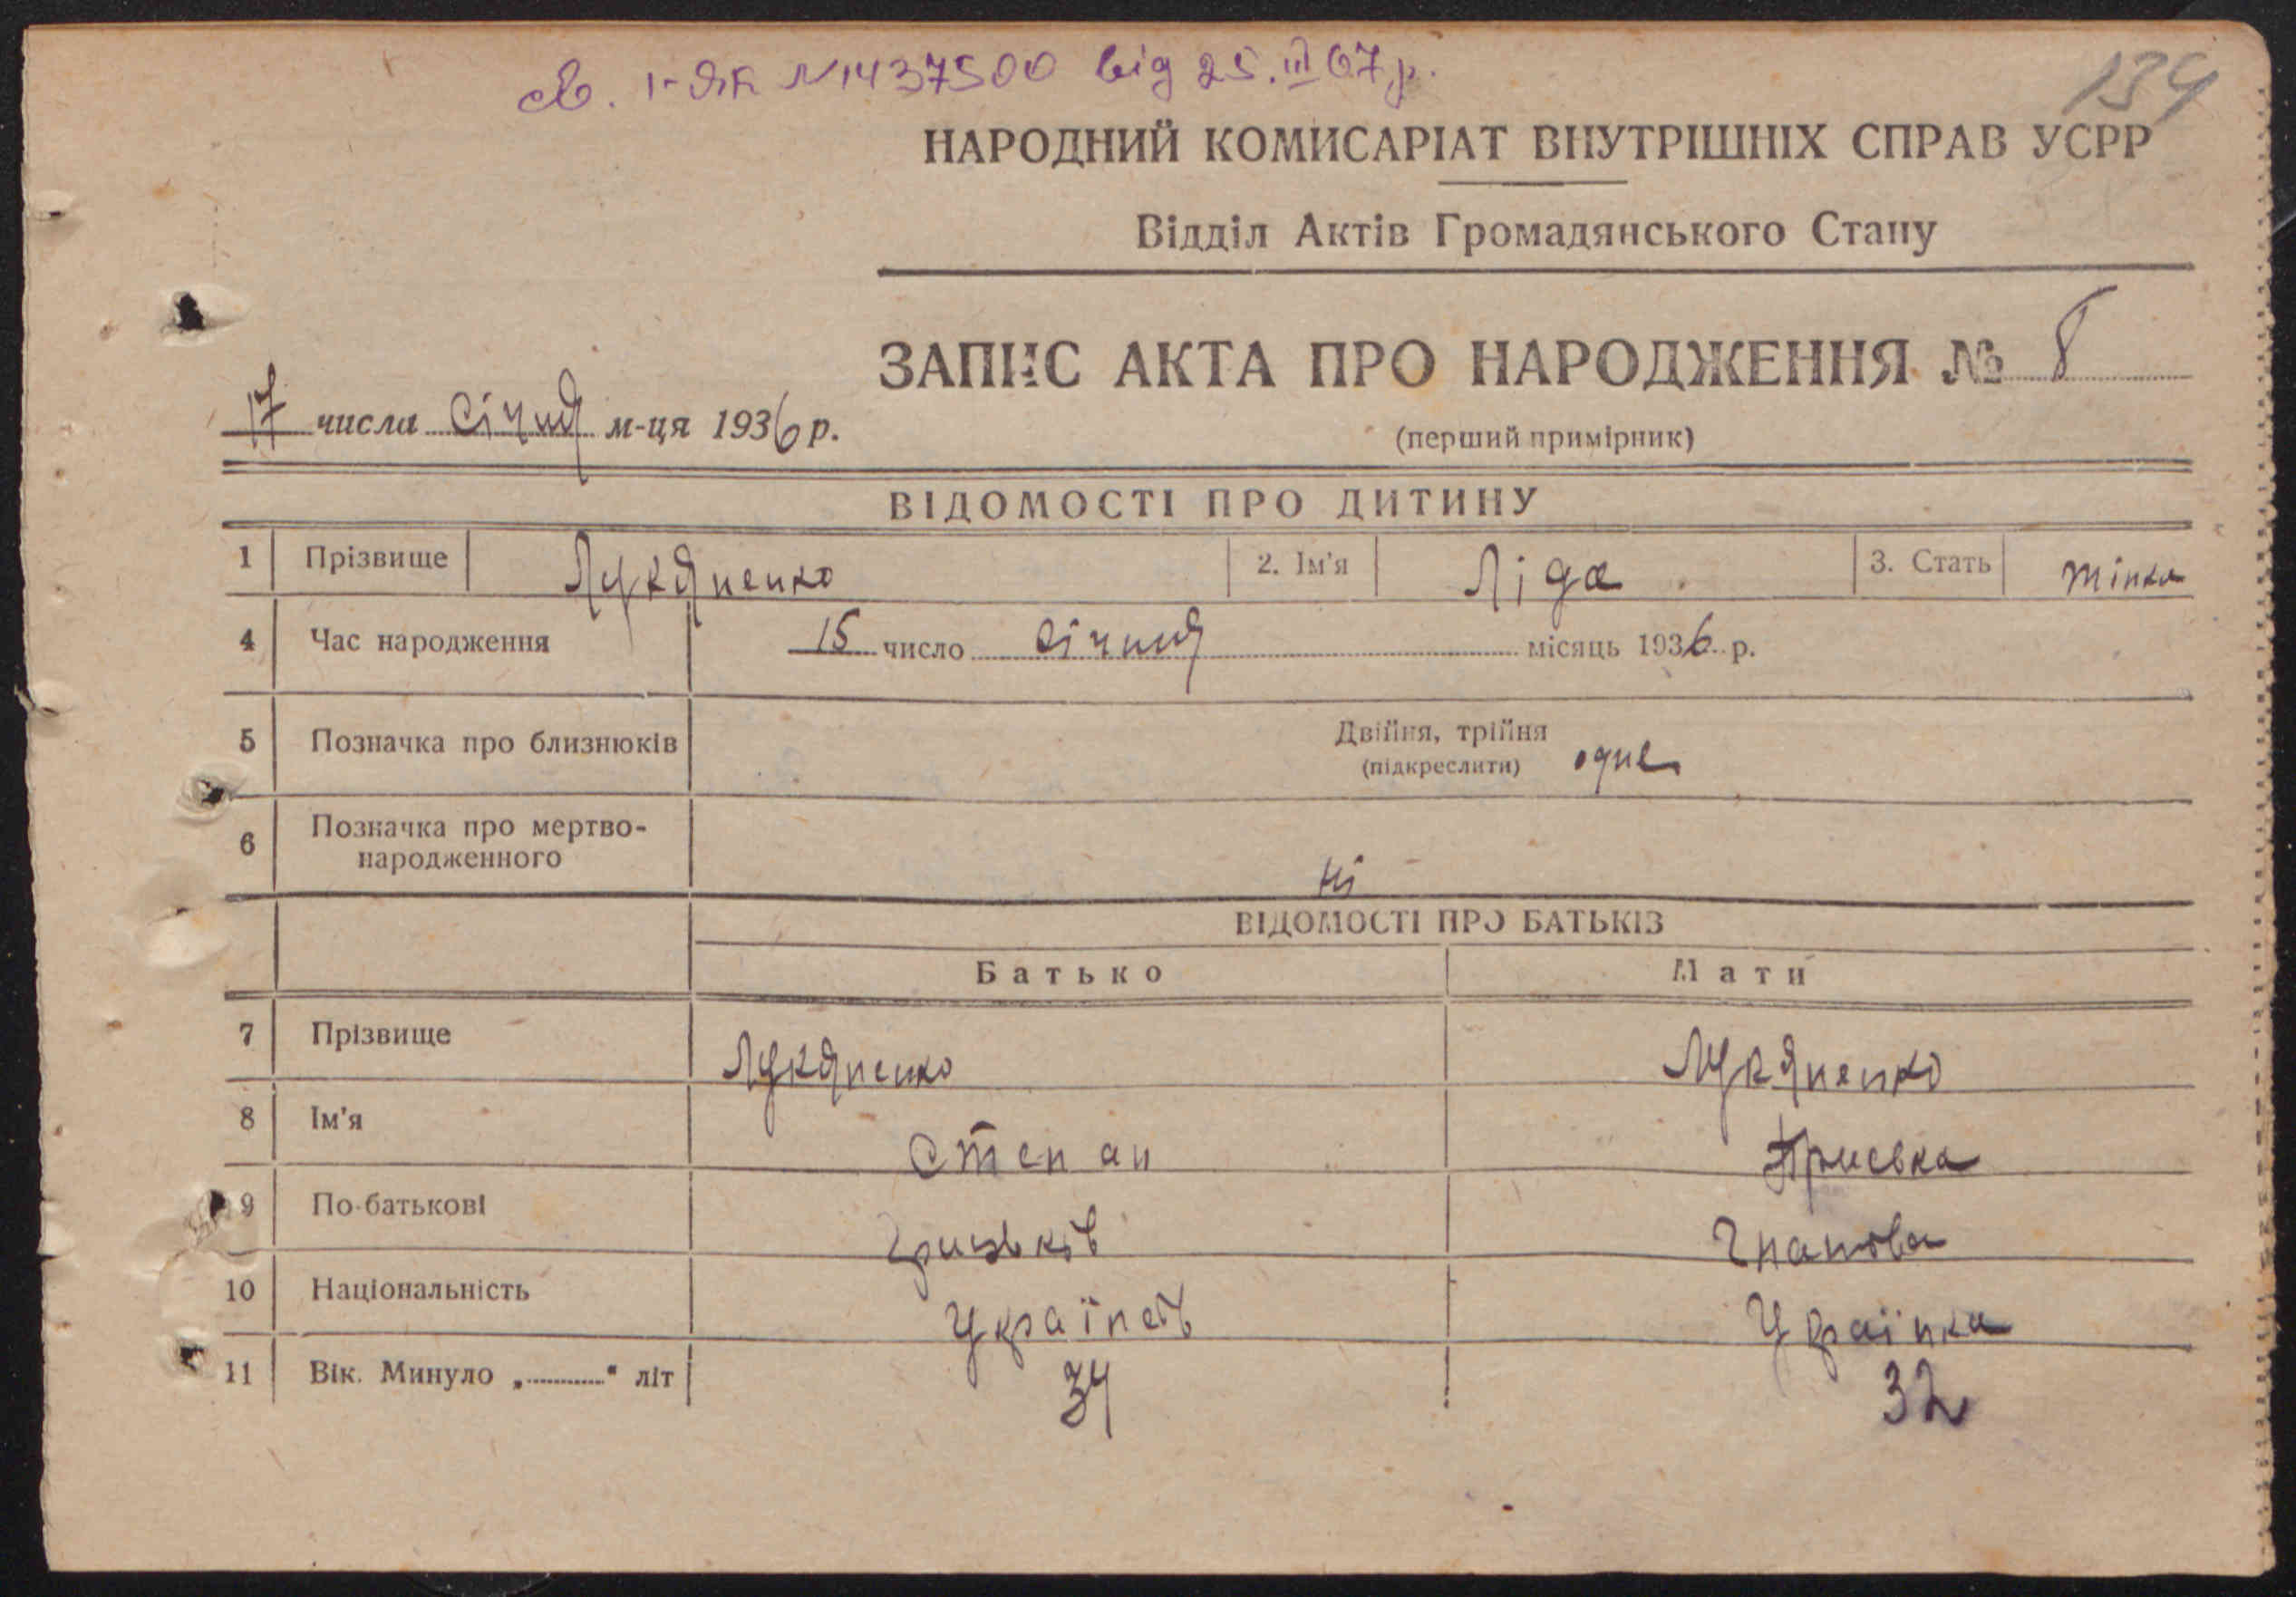 св. І-ЯК №1437500 від 25.III 67 р.
134
НАРОДНИЙ КОМИСАРІАТ ВНУТРІШНІХ СПРАВ УСРР
Відділ Актів Громадянського Стану
ЗАПИС АКТА ПРО НАРОДЖЕННЯ № 8
17 числа Січня м-ця 1936 р.
(перший примірник)
ВІДОМОСТІ ПРО ДИТИНУ
1 Прізвище Лукяненко 2. Ім'я Ліда 3. Стать жінка
4 Час народження 15 число Січня місяць 1936 р.
5 Позначка про близнюків Двійня, трійня
(підкреслити) одне
6 Позначка про мертво-
народженного ні
ВІДОМОСТІ ПРО БАТЬКІВ
Батько Мати
7 Прізвище Лукяненко Лукяненко
8 Ім'я Степан
9 По-батькові Грицьків Гнатова
10 Національність Українець Українка
11 Вік. Минуло „............“ літ 34 32